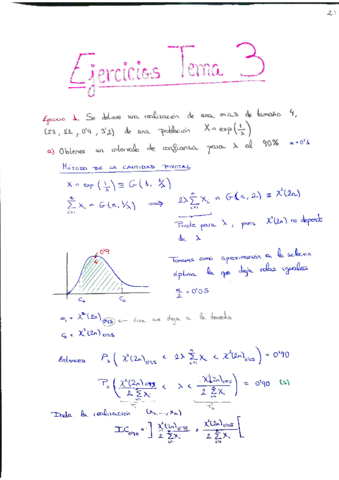 21
Ejercicios Tema 3
Ejercicio 1. Se obtiene una realización de una m.a.s de tamaño 4,
de una población X ~ exp(1/λ)
a) Obtener un intervalo de confianza para λ al 90% α=0'1
MÉTODO DE LA CANTIDAD PIVOTAL
X ~ exp(1/λ) ≡ G(1, 1/λ)
Pivote para λ, pues χ²(2n) no depende
de λ
0'9
Tomamos como aproximación a la solución
óptima la que deja colas iguales
α/2 = 0'05
C₁ C₂
que deja a la derecha
C₂ = χ²(2n)₀'₀₅
Entonces P_λ ( χ²(2n)₀'₉₅ < 2λ Σ Xᵢ < χ²(2n)₀'₀₅ ) = 0'90
P_λ ( χ²(2n)₀'₉₅ / 2 Σ Xᵢ < λ < χ²(2n)₀'₀₅ / 2 Σ Xᵢ ) = 0'90
Dada la realización (x₁, ..., xₙ)
IC₀'₉₀ = ] χ²(2n)₀'₉₅ / 2 Σ xᵢ , χ²(2n)₀'₀₅ / 2 Σ xᵢ [